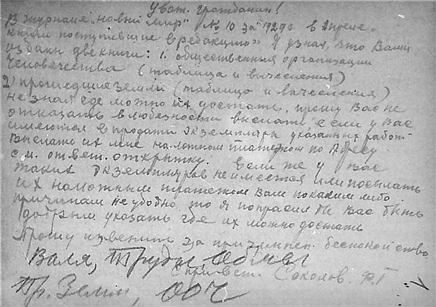 Уваж. гражданин!
В журнале „Новый мир" № 10 за 1929г. в отделе
„Книги поступившие в редакцию" я узнал, что Вами
изданы две книги: 1. Общественная организация
человечества (таблица и вычисления)
2) прошедшие земли (таблица и вычисления)
не зная где можно их достать, прошу Вас не
отказать в любезности выслать если у Вас
имеются в продаже экземпляры указанных работ
выслать их мне наложным платежом по адресу
см. ответ. открытку. Если же у Вас
таких экземпляров не имеется или посылать
их наложным платежом Вам по каким либо
причинам не удобно то я попрошу бы Вас быть
добрым указать где их можно достать
Прошу извинить за причинен. беспокойство.
Валя, Труды
С прив. Соколов.
Пр. Земли, ООЧ